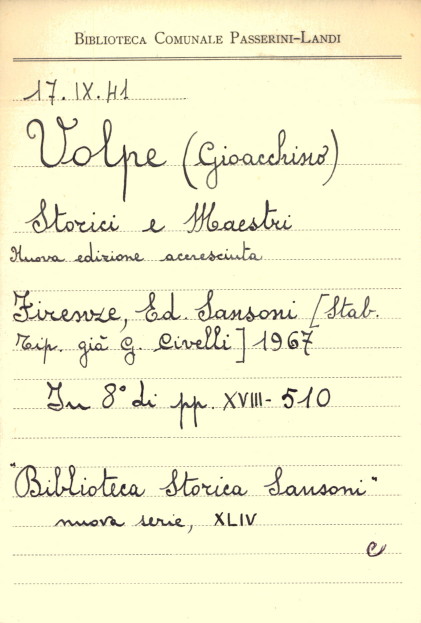 BIBLIOTECA COMUNALE PASSERINI-LANDI
17.IX.41
Volpe (Gioacchino)
Storici e Maestri
Nuova edizione accresciuta
Firenze, Ed. Sansoni [Stab.
Tip. già G. Civelli] 1967
In 8° di pp. XVIII-510
"Biblioteca Storica Sansoni"
nuova serie, XLIV
e